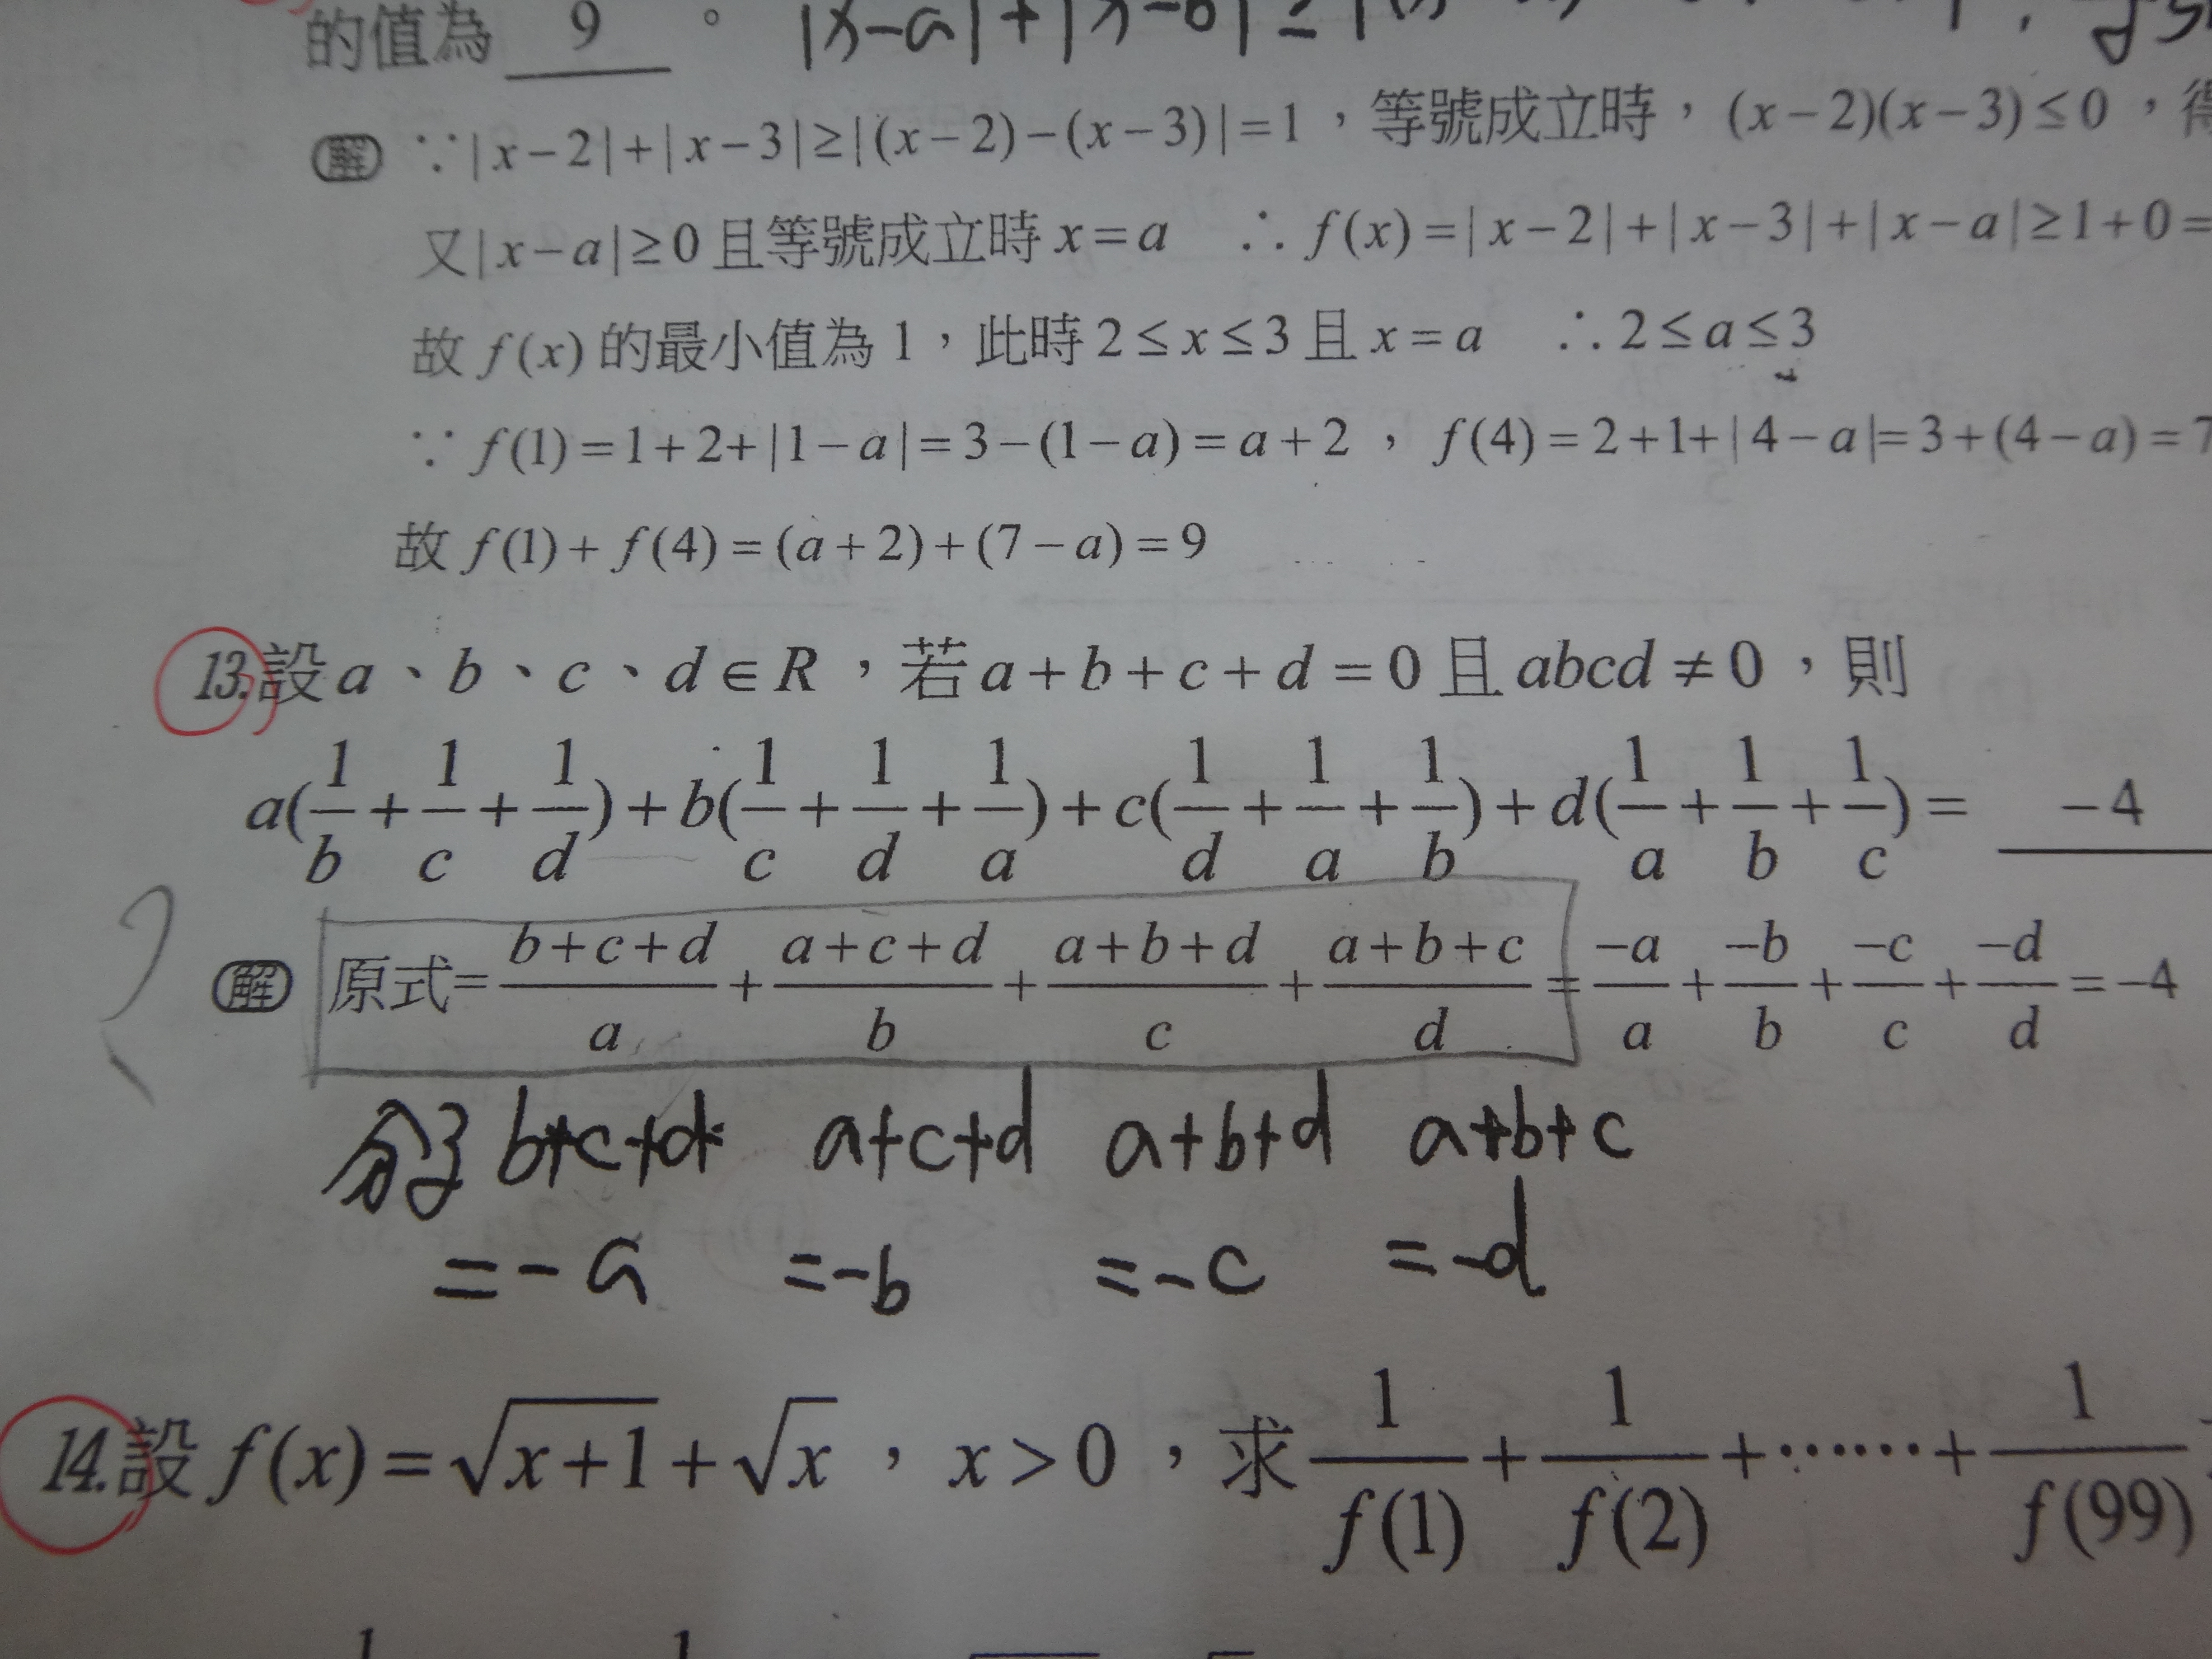 的值為 9 。 |x-a|+|x-b|≥|
解 ∵|x-2|+|x-3|≥|(x-2)-(x-3)|=1，等號成立時，(x-2)(x-3)≤0，得
又|x-a|≥0且等號成立時x=a ∴f(x)=|x-2|+|x-3|+|x-a|≥1+0=
故f(x)的最小值為1，此時2≤x≤3且x=a ∴2≤a≤3
∵f(1)=1+2+|1-a|=3-(1-a)=a+2，f(4)=2+1+|4-a|=3+(4-a)=7
故f(1)+f(4)=(a+2)+(7-a)=9
13.設a、b、c、d∈R，若a+b+c+d=0且abcd≠0，則
a(1/b+1/c+1/d)+b(1/c+1/d+1/a)+c(1/d+1/a+1/b)+d(1/a+1/b+1/c)= -4
解 原式=(b+c+d)/a+(a+c+d)/b+(a+b+d)/c+(a+b+c)/d=-a/a+-b/b+-c/c+-d/d=-4
分子 b+c+d a+c+d a+b+d a+b+c
=-a =-b =-c =-d
14.設f(x)=√(x+1)+√x，x>0，求1/f(1)+1/f(2)+……+1/f(99)